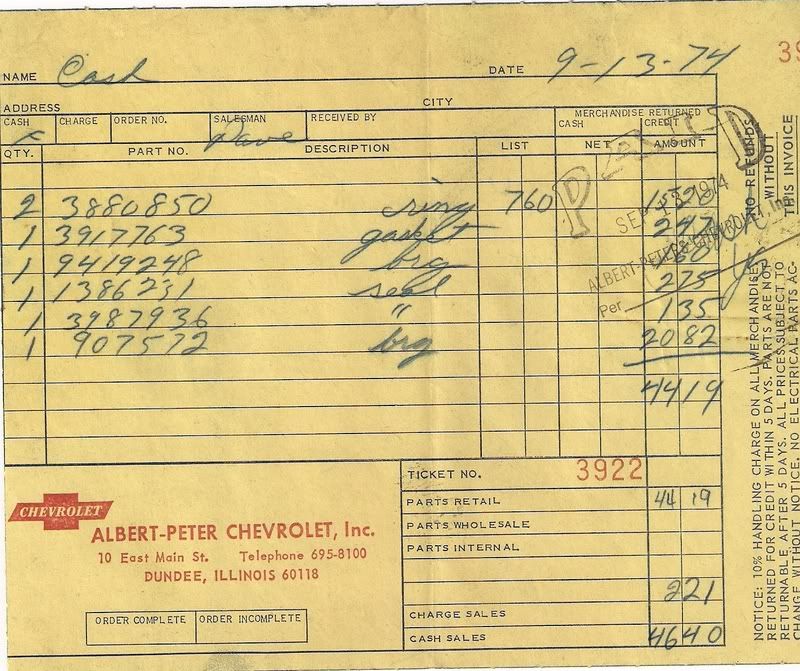 39
NAME Cash DATE 9-13-74
ADDRESS CITY
CASH CHARGE ORDER NO. SALESMAN RECEIVED BY MERCHANDISE RETURNED
CASH CREDIT
Dave
QTY. PART NO. DESCRIPTION LIST NET AMOUNT
PAID
SEP 13 1974
ALBERT-PETER CHEVROLET, Inc.
Per
2 3880850 ring 760 1520
1 3917763 gasket 247
1 9419248 brg 160
1 1386231 seal 275
1 3987936 " 135
1 907572 brg 2082
4419
TICKET NO. 3922
PARTS RETAIL 44 19
PARTS WHOLESALE
PARTS INTERNAL
221
CHARGE SALES
CASH SALES 4640
CHEVROLET
ALBERT-PETER CHEVROLET, Inc.
10 East Main St. Telephone 695-8100
DUNDEE, ILLINOIS 60118
ORDER COMPLETE ORDER INCOMPLETE
NOTICE: 10% HANDLING CHARGE ON ALL MERCHANDISE
RETURNED FOR CREDIT WITHIN 5 DAYS. PARTS ARE NOT
RETURNABLE AFTER 5 DAYS. ALL PRICES SUBJECT TO
CHANGE WITHOUT NOTICE. NO ELECTRICAL PARTS AC-
NO REFUNDS
WITHOUT
THIS INVOICE